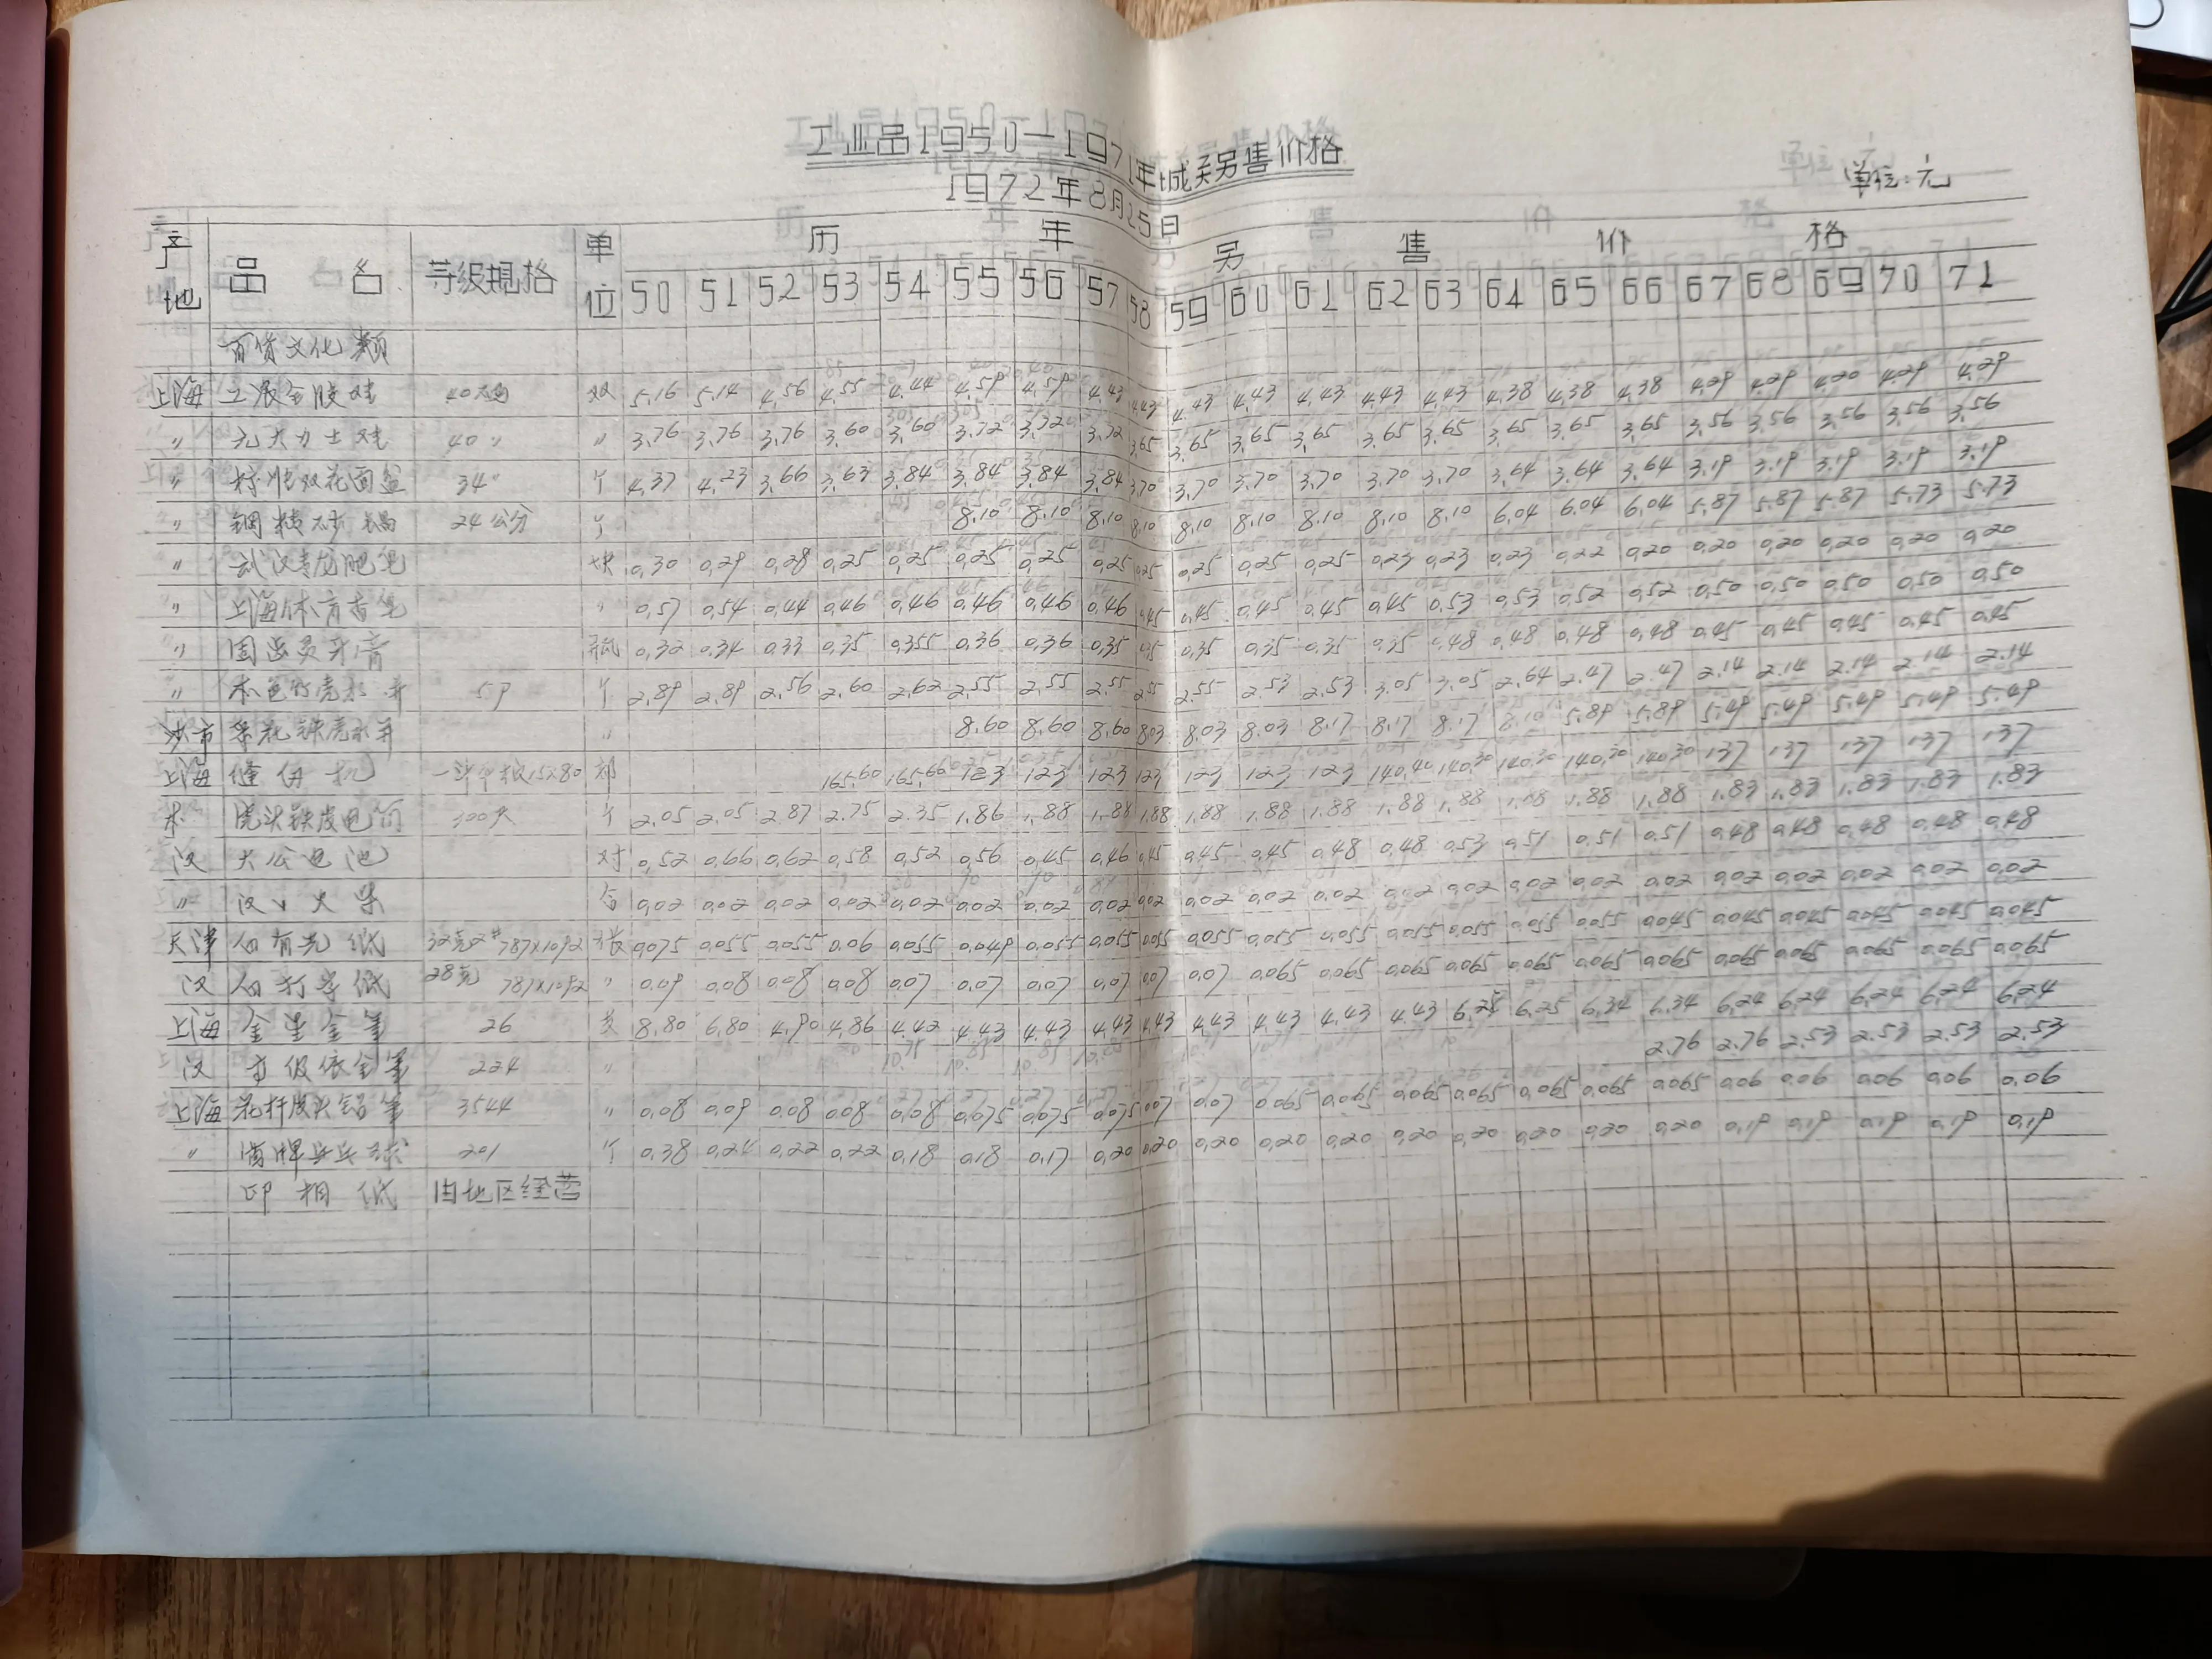 工业品1950—1971年城关另售价格
1972年8月25日
单位:元
产地 品名 等级规格 单位 历年另售价格
50 51 52 53 54 55 56 57 58 59 60 61 62 63 64 65 66 67 68 69 70 71
百货文化类
上海 全胶鞋 40 双 5.16 5.14 4.56 4.55 4.44 4.59 4.59 4.43 4.43 4.43 4.43 4.43 4.43 4.43 4.38 4.38 4.38 4.29 4.29 4.20 4.29 4.29
〃 元大力士鞋 40〃 〃 3.76 3.76 3.76 3.60 3.60 3.72 3.72 3.72 3.65 3.65 3.65 3.65 3.65 3.65 3.65 3.65 3.65 3.56 3.56 3.56 3.56 3.56
〃 标准双花面盆 34〃 个 4.37 4.23 3.66 3.63 3.84 3.84 3.84 3.84 3.70 3.70 3.70 3.70 3.70 3.70 3.64 3.64 3.64 3.19 3.19 3.19 3.19 3.19
〃 钢精砂锅 24公分 个 8.10 8.10 8.10 8.10 8.10 8.10 8.10 8.10 8.10 6.04 6.04 6.04 5.87 5.87 5.87 5.73 5.73
〃 武汉肥皂 块 0.30 0.29 0.28 0.25 0.25 0.25 0.25 0.25 0.25 0.25 0.25 0.25 0.23 0.23 0.23 0.22 0.20 0.20 0.20 0.20 0.20 0.20
〃 上海体育香皂 〃 0.57 0.54 0.44 0.46 0.46 0.46 0.46 0.46 0.45 0.45 0.45 0.45 0.45 0.53 0.53 0.52 0.52 0.50 0.50 0.50 0.50 0.50
〃 固齿灵牙膏 瓶 0.32 0.34 0.33 0.35 0.355 0.36 0.36 0.35 0.35 0.35 0.35 0.35 0.35 0.48 0.48 0.48 0.48 0.45 0.45 0.45 0.45 0.45
〃 本色竹壳水并 5P 个 2.89 2.89 2.56 2.60 2.62 2.55 2.55 2.55 2.55 2.55 2.53 2.53 3.05 3.05 2.64 2.47 2.47 2.14 2.14 2.14 2.14 2.14
沙市 花铁壳水并 〃 8.60 8.60 8.60 8.03 8.03 8.03 8.17 8.17 8.17 8.10 5.89 5.89 5.49 5.49 5.49 5.49 5.49
上海 缝纫机 一斗 15×80 部 165.60 165.60 123 123 123 123 123 123 123 140.40 140.30 140.30 140.30 140.30 137 137 137 137 137
虎头铁皮电筒 300 个 2.05 2.05 2.87 2.75 2.35 1.86 1.88 1.88 1.88 1.88 1.88 1.88 1.88 1.88 1.88 1.88 1.88 1.83 1.83 1.83 1.83 1.83
汉 大公电池 对 0.52 0.66 0.62 0.58 0.52 0.56 0.45 0.46 0.45 0.45 0.45 0.48 0.48 0.53 0.51 0.51 0.51 0.48 0.48 0.48 0.48 0.48
〃 汉口火柴 合 0.02 0.02 0.02 0.02 0.02 0.02 0.02 0.02 0.02 0.02 0.02 0.02 0.02 0.02 0.02 0.02 0.02 0.02 0.02 0.02 0.02 0.02
天津 白有光纸 32克2# 787×1092 张 0.075 0.055 0.055 0.06 0.055 0.049 0.055 0.055 0.055 0.055 0.055 0.055 0.055 0.055 0.055 0.055 0.045 0.045 0.045 0.045 0.045 0.045
汉 白打字纸 28克 787×1092 〃 0.09 0.08 0.08 0.08 0.07 0.07 0.07 0.07 0.07 0.07 0.065 0.065 0.065 0.065 0.065 0.065 0.065 0.065 0.065 0.065 0.065 0.065
上海 金星金笔 26 支 8.80 6.80 4.90 4.86 4.42 4.43 4.43 4.43 4.43 4.43 4.43 4.43 4.43 6.25 6.25 6.34 6.34 6.24 6.24 6.24 6.24 6.24
汉 依金笔 224 〃 2.76 2.76 2.53 2.53 2.53 2.53
上海 花杆皮头铅笔 3544 〃 0.08 0.09 0.08 0.08 0.08 0.075 0.075 0.075 0.07 0.07 0.065 0.065 0.065 0.065 0.065 0.065 0.065 0.06 0.06 0.06 0.06 0.06
〃 牌乒乓球 201 个 0.38 0.24 0.22 0.22 0.18 0.18 0.17 0.20 0.20 0.20 0.20 0.20 0.20 0.20 0.20 0.20 0.20 0.19 0.19 0.19 0.19 0.19
印相纸 由地区经营